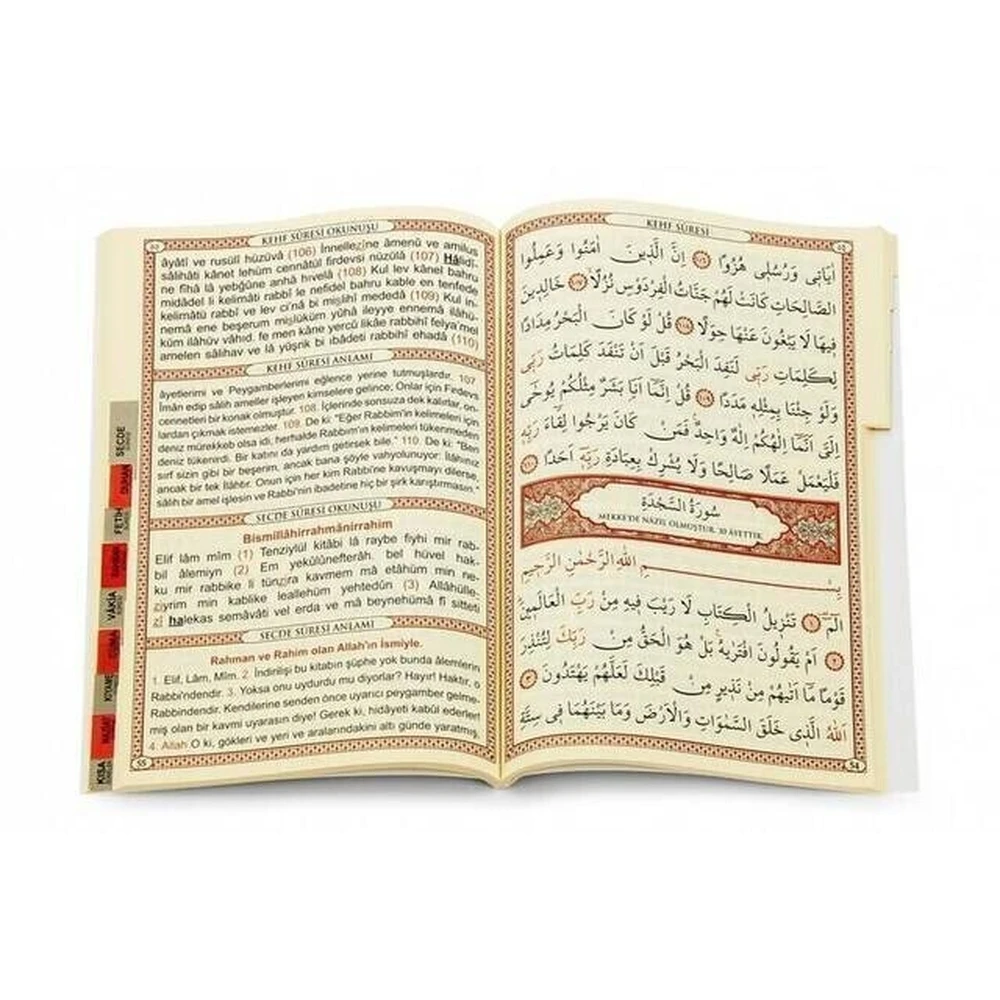 KEHF SÛRESİ OKUNUŞU
âyâtî ve rusulî hüzüvâ (106) İnnellezîne âmenû ve amilus
sâlihâti kânet lehüm cennâtül firdevsi nüzülâ (107) Hâlidî-
ne fîhâ lâ yebğûne anhâ hıvelâ (108) Kul lev kânel bahru
midâdel li kelimâti rabbî le nefidel bahru kable en tenfede
kelimâtü rabbî ve lev ci'nâ bi mislihî mededâ (109) Kul in-
nemâ ene beşerum mislüküm yûhâ ileyye ennemâ ilâhü-
küm ilâhüv vâhıd. fe men kâne yercû likâe rabbihî felya'mel
amelen sâlihav ve lâ yüşrik bi ıbâdeti rabbihî ehadâ (110)
KEHF SÛRESİ ANLAMI
âyetlerimi ve Peygamberlerimi eğlence yerine tutmuşlardır. 107.
İman edip salih ameller işleyen kimselere gelince; Onlar için Firdevs
cennetleri bir konak olmuştur. 108. İçlerinde sonsuza dek kalırlar, on-
lardan çıkmak istemezler. 109. De ki: "Eğer Rabbim'in kelimeleri için
deniz mürekkeb olsa idi, herhalde Rabbim'in kelimeleri tükenmeden
deniz tükenirdi. Bir katını da yardım getirsek bile." 110. De ki: "Ben
sırf sizin gibi bir beşerim, ancak bana şöyle vahyolunuyor: İlâhınız
ancak bir tek İlâhtır. Onun için her kim Rabbi'ne kavuşmayı dilerse,
sâlih bir amel işlesin ve Rabbi'nin ibadetine hiç bir şirk karıştırmasın."
SECDE SÛRESİ OKUNUŞU
Bismillâhirrahmânirrahim
Elif lâm mîm (1) Tenziylül kitâbi lâ raybe fiyhi mir rab-
bil âlemiyn (2) Em yekûlûnefterâh. bel hüvel hak-
ku mir rabbike li tünzira kavmem mâ etâhüm min ne-
ziyrim min kablike leallehüm yehtedûn (3) Allâhülle-
zî halekas semâvâti vel erda ve mâ beynehümâ fî sitteti
SECDE SÛRESİ ANLAMI
Rahman ve Rahim olan Allah'ın İsmiyle.
1. Elif, Lâm, Mîm. 2. İndirilişi bu kitabın şüphe yok bunda âlemlerin
Rabbi'ndendir. 3. Yoksa onu uydurdu mu diyorlar? Hayır! Haktır, o
Rabbindendir. Kendilerine senden önce uyarıcı peygamber gelme-
miş olan bir kavmi uyarasın diye! Gerek ki, hidâyeti kabûl ederler!
4. Allah O ki, gökleri ve yeri ve aralarındakini altı günde yaratmış,
55
SECDE
DUHAN
FETİH
RAHMAN
VÂKIA
CUMA
KIYAME
KISA
KEHF SÛRESİ
اٰيَاتٖى وَرُسُلٖى هُزُوًا ﴿١٠٦﴾ اِنَّ الَّذٖينَ اٰمَنُوا وَعَمِلُوا
الصَّالِحَاتِ كَانَتْ لَهُمْ جَنَّاتُ الْفِرْدَوْسِ نُزُلًا ﴿١٠٧﴾ خَالِدٖينَ
فٖيهَا لَا يَبْغُونَ عَنْهَا حِوَلًا ﴿١٠٨﴾ قُلْ لَوْ كَانَ الْبَحْرُ مِدَادًا
لِكَلِمَاتِ رَبّٖى لَنَفِدَ الْبَحْرُ قَبْلَ اَنْ تَنْفَدَ كَلِمَاتُ رَبّٖى
وَلَوْ جِئْنَا بِمِثْلِهٖ مَدَدًا ﴿١٠٩﴾ قُلْ اِنَّمَا اَنَا بَشَرٌ مِثْلُكُمْ يُوحٰى
اِلَىَّ اَنَّمَا اِلٰهُكُمْ اِلٰهٌ وَاحِدٌ فَمَنْ كَانَ يَرْجُوا لِقَاءَ رَبِّهٖ
فَلْيَعْمَلْ عَمَلًا صَالِحًا وَلَا يُشْرِكْ بِعِبَادَةِ رَبِّهٖ اَحَدًا ﴿١١٠﴾
سُورَةُ السَّجْدَةِ
MEKKE'DE NAZİL OLMUŞTUR. 30 ÂYETTİR.
بِسْمِ اللّٰهِ الرَّحْمٰنِ الرَّحٖيمِ
الٓمٓ ﴿١﴾ تَنْزٖيلُ الْكِتَابِ لَا رَيْبَ فٖيهِ مِنْ رَبِّ الْعَالَمٖينَ
﴿٢﴾ اَمْ يَقُولُونَ افْتَرٰيهُ بَلْ هُوَ الْحَقُّ مِنْ رَبِّكَ لِتُنْذِرَ
قَوْمًا مَا اَتٰيهُمْ مِنْ نَذٖيرٍ مِنْ قَبْلِكَ لَعَلَّهُمْ يَهْتَدُونَ ﴿٣﴾
اَللّٰهُ الَّذٖى خَلَقَ السَّمٰوَاتِ وَالْاَرْضَ وَمَا بَيْنَهُمَا فٖى سِتَّةِ
54